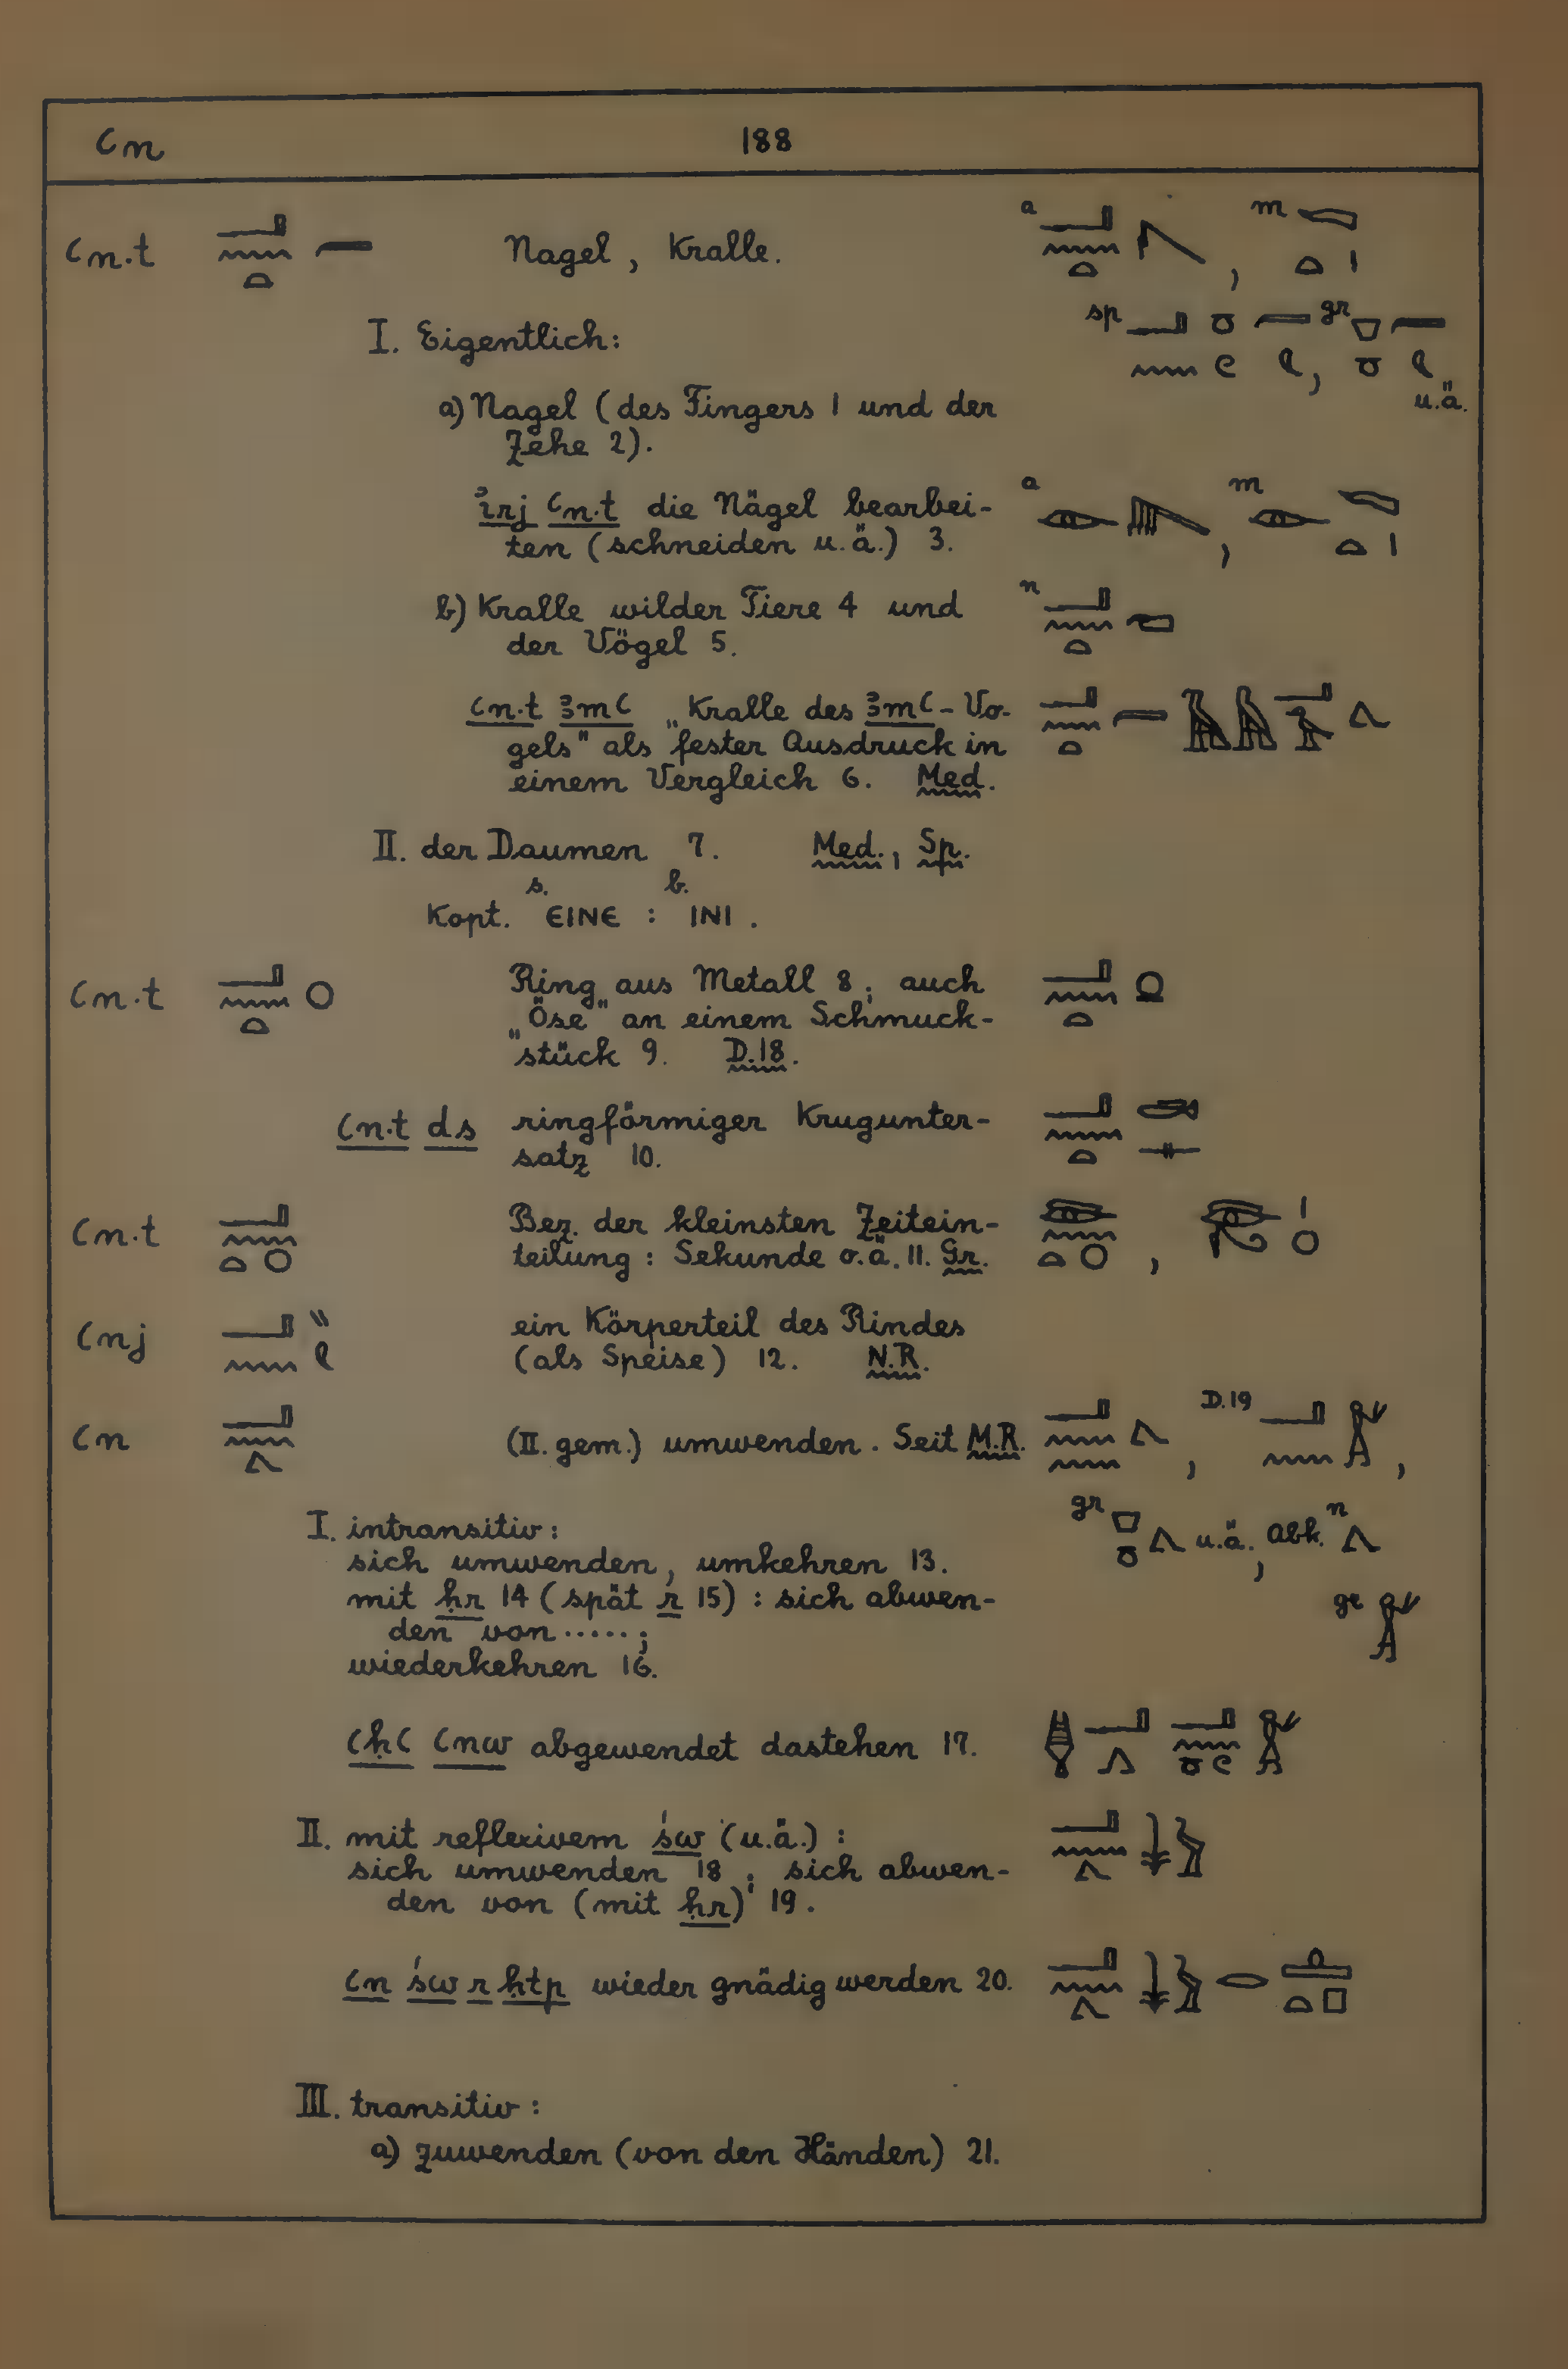 ꜥn 188
ꜥn.t Nagel, Kralle. a m
I. Eigentlich: sp gr
u.ä.
a) Nagel (des Fingers 1 und der
Zehe 2).
ı͗rj ꜥn.t die Nägel bearbei- a m
ten (schneiden u.ä.) 3.
b) Kralle wilder Tiere 4 und n
der Vögel 5.
ꜥn.t ꜣmꜥ „Kralle des ꜣmꜥ-Vo-
gels" als fester Ausdruck in
einem Vergleich 6. Med.
II. der Daumen 7. Med., Sp.
s. b.
Kopt. ⲉⲓⲛⲉ : ⲓⲛⲓ .
ꜥn.t Ring aus Metall 8; auch
„Öse" an einem Schmuck-
stück 9. D.18.
ꜥn.t ds ringförmiger Krugunter-
satz 10.
ꜥn.t Bez. der kleinsten Zeitein-
teilung: Sekunde o.ä. 11. Gr.
ꜥnj ein Körperteil des Rindes
(als Speise) 12. N.R.
ꜥn (II. gem.) umwenden. Seit M.R. D.19
I. intransitiv: gr u.ä., Abk. n
sich umwenden, umkehren 13.
mit ḥr 14 (spät r 15): sich abwen- gr
den von .....;
wiederkehren 16.
ꜥḥꜥ ꜥnw abgewendet dastehen 17.
II. mit reflexivem św (u.ä.):
sich umwenden 18; sich abwen-
den von (mit ḥr) 19.
ꜥn św r ḥtp wieder gnädig werden 20.
III. transitiv:
a) zuwenden (von den Händen) 21.